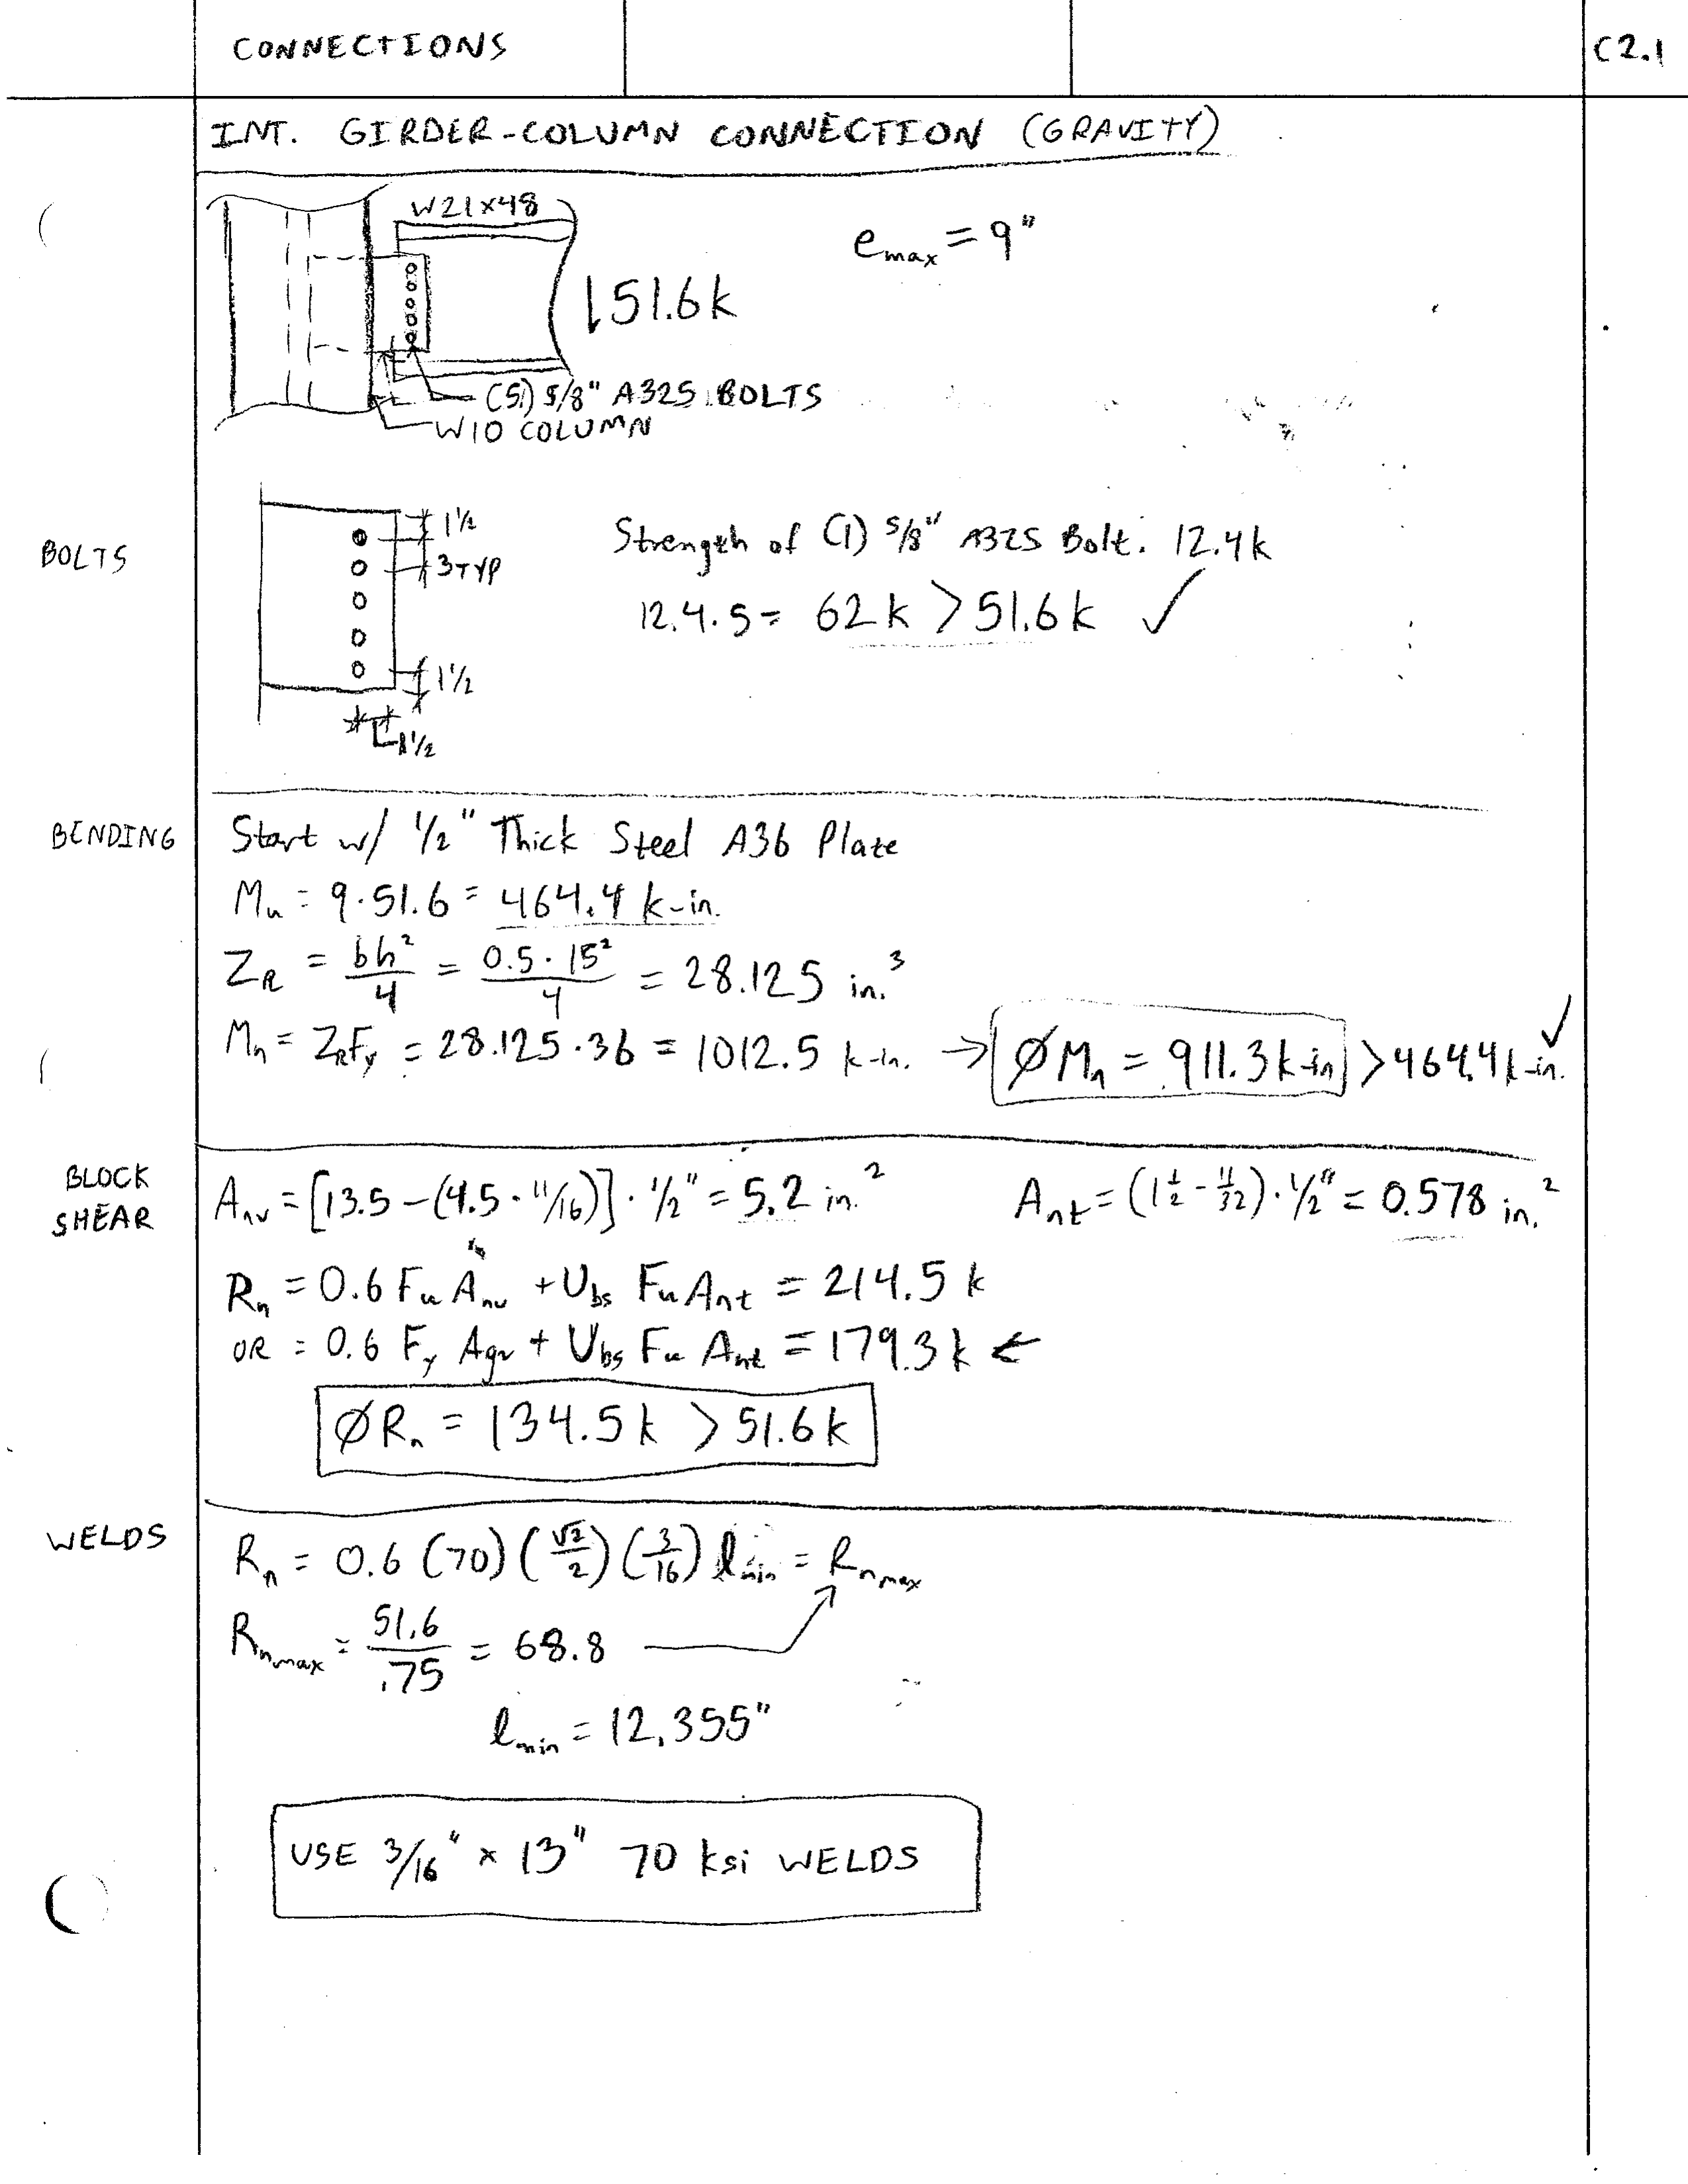 CONNECTIONS
C2.1
INT. GIRDER-COLUMN CONNECTION (GRAVITY)
W21x48
e max = 9"
↓51.6k
(5) 5/8" A325 BOLTS
W10 COLUMN
BOLTS
1 1/2
3 TYP
1 1/2
1 1/2
Strength of (1) 5/8" A325 Bolt: 12.4k
12.4·5 = 62k > 51.6k ✓
BENDING
Start w/ 1/2" Thick Steel A36 Plate
Mu = 9·51.6 = 464.4 k-in.
ZR = bh²/4 = 0.5·15²/4 = 28.125 in.³
Mn = ZRFy = 28.125·36 = 1012.5 k-in. → ØMn = 911.3k-in > 464.4k-in. ✓
BLOCK
SHEAR
Anv = [13.5-(4.5·11/16)]·1/2" = 5.2 in.²
Ant = (1 1/2 - 11/32)·1/2" = 0.578 in.²
Rn = 0.6 Fu Anv + Ubs Fu Ant = 214.5 k
OR = 0.6 Fy Agv + Ubs Fu Ant = 179.3k ←
ØRn = 134.5k > 51.6k
WELDS
Rn = 0.6 (70) (√2/2) (3/16) lmin = Rnmax
Rnmax = 51.6/.75 = 68.8
lmin = 12.355"
USE 3/16" x 13" 70 ksi WELDS